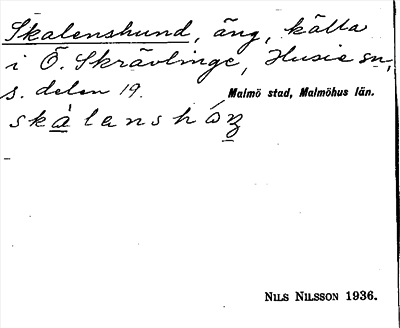 Skalenshund, äng, källa
i Ö. Skrävlinge, Husie sn,
s. delen 19. Malmö stad, Malmöhus län.
NILS NILSSON 1936.